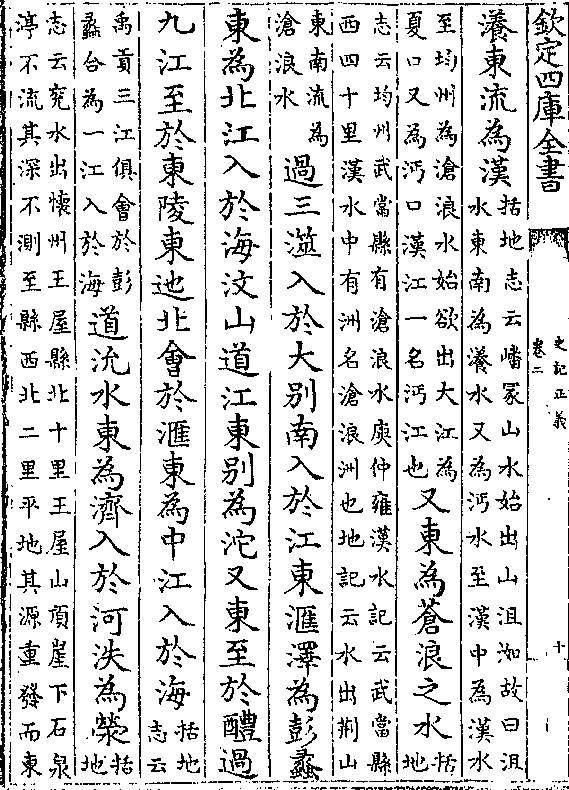 欽定四庫全書
史記正義
卷二
十
瀁東流為漢
括地志云嶓冢山水始出山沮洳故曰沮
水東南為瀁水又為沔水至漢中為漢水
至均州為滄浪水始欲出大江為
夏口又為沔口漢江一名沔江也
又東為蒼浪之水
括
地
志云均州武當縣有滄浪水庾仲雍漢水記云武當縣
西四十里漢水中有洲名滄浪洲也地記云水出荆山
東南流為
滄浪水
過三澨入於大别南入於江東滙澤為彭蠡
東為北江入於海汶山道江東别為沱又東至於醴過
九江至於東陵東迆北會於滙東為中江入於海
括地
志云
禹貢三江俱會於彭
蠡合為一江入於海
道沇水東為濟入於河泆為滎
括
地
志云兖水出懷州王屋縣北十里王屋山頂崖下石泉
渟不流其深不測至縣西北二里平地其源重發而東